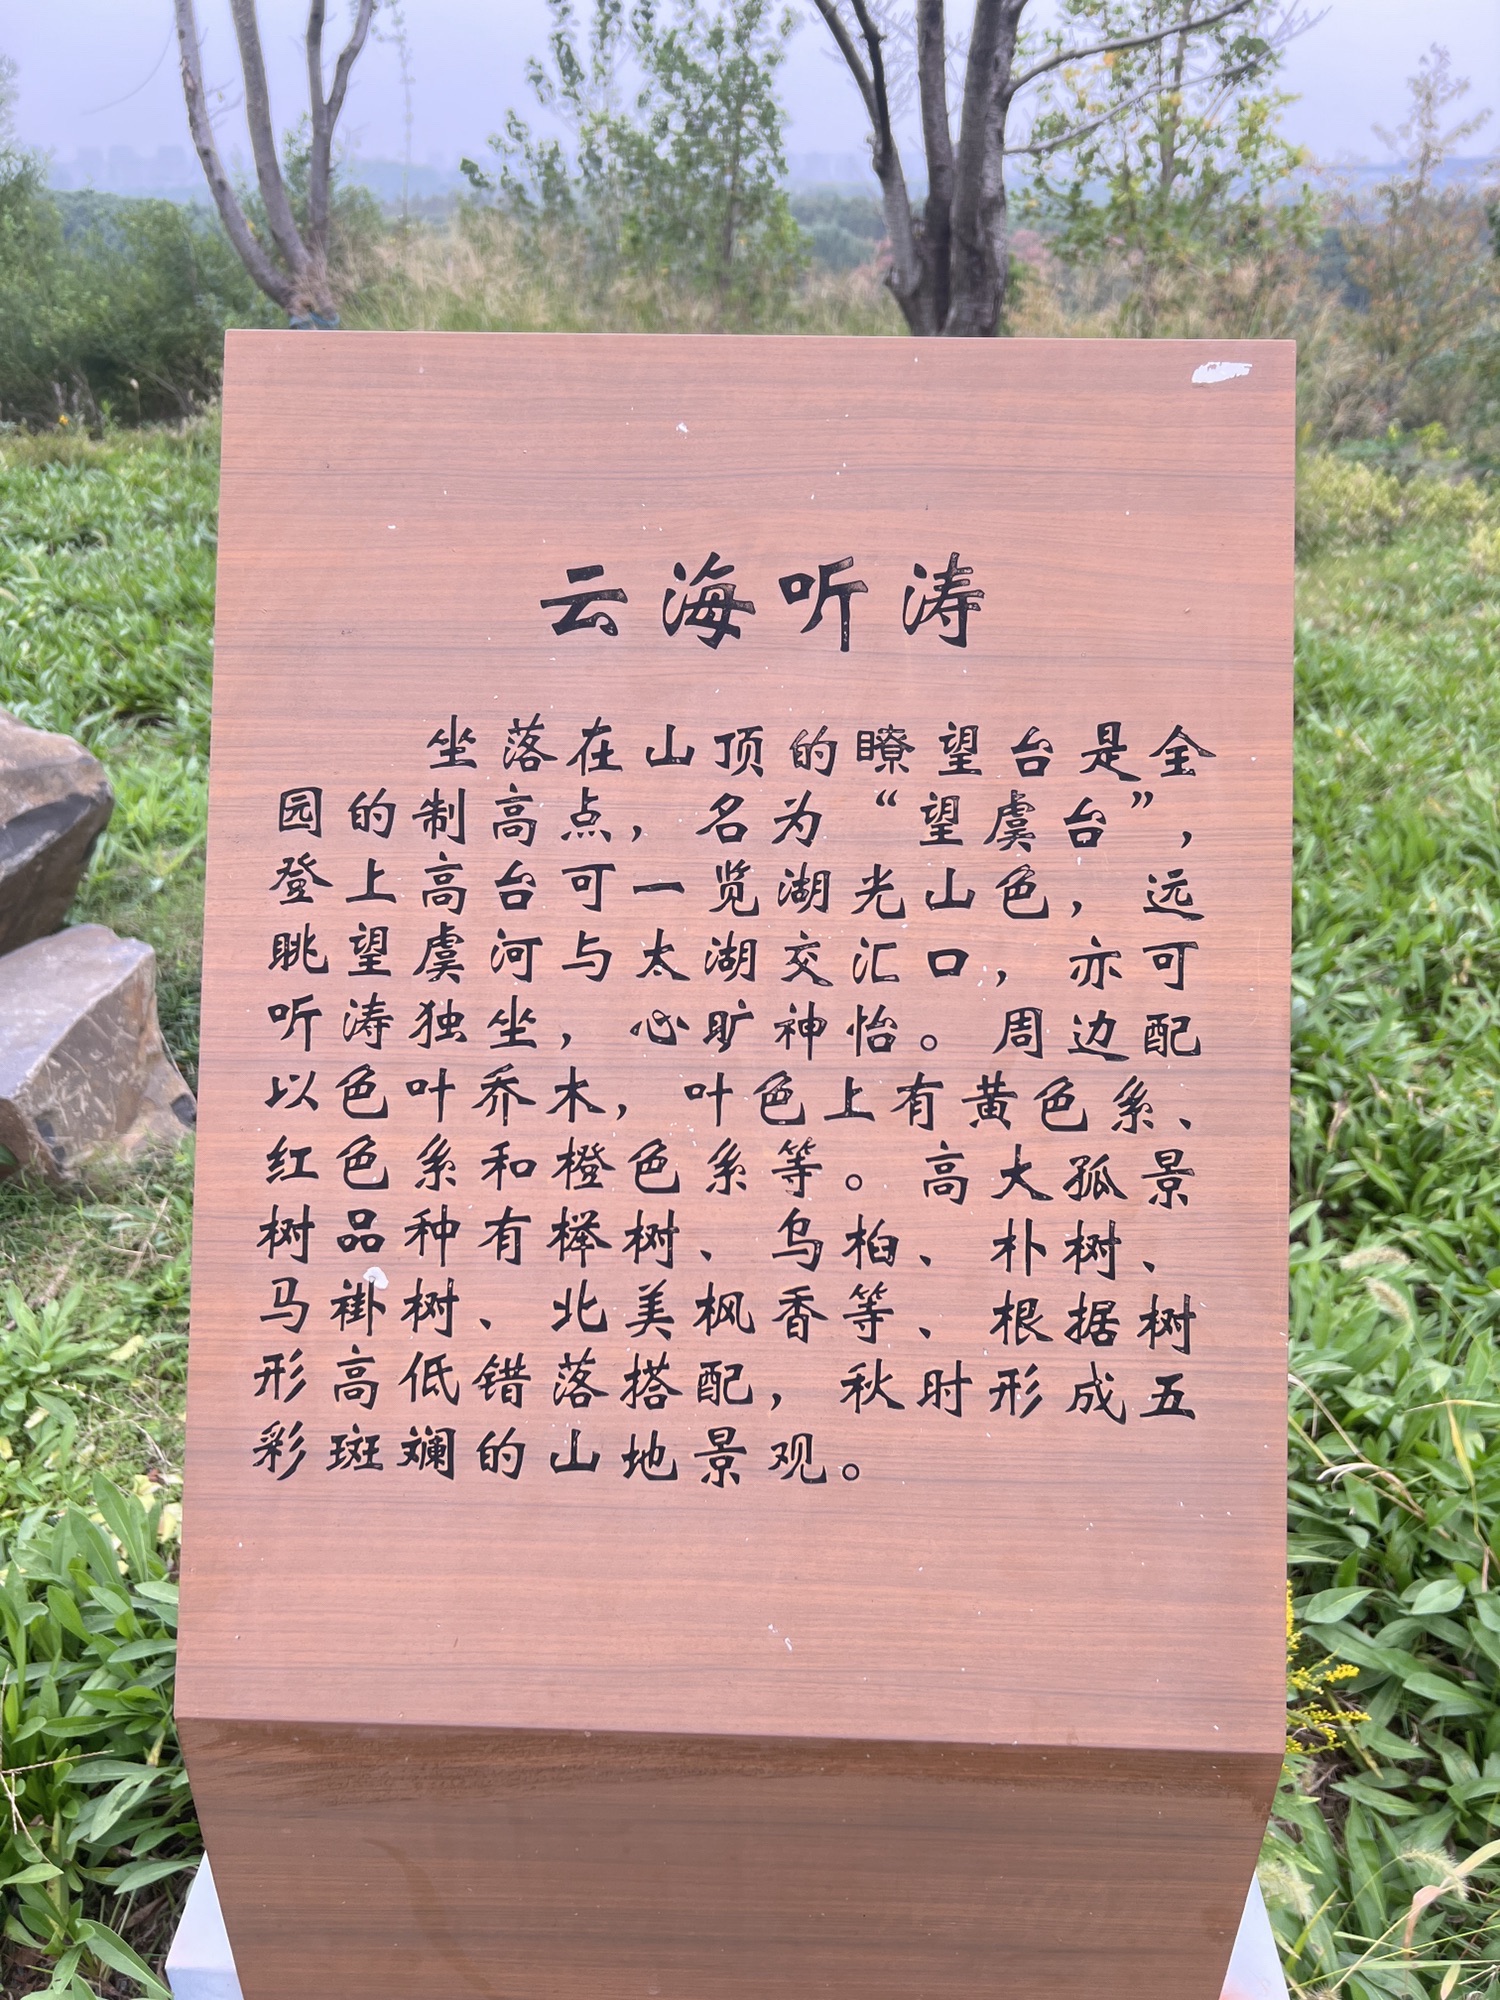 云海听涛
坐落在山顶的瞭望台是全
园的制高点，名为“望虞台”，
登上高台可一览湖光山色，远
眺望虞河与太湖交汇口，亦可
听涛独坐，心旷神怡。周边配
以色叶乔木，叶色上有黄色系、
红色系和橙色系等。高大孤景
树品种有榉树、乌桕、朴树、
马褂树、北美枫香等、根据树
形高低错落搭配，秋时形成五
彩斑斓的山地景观。